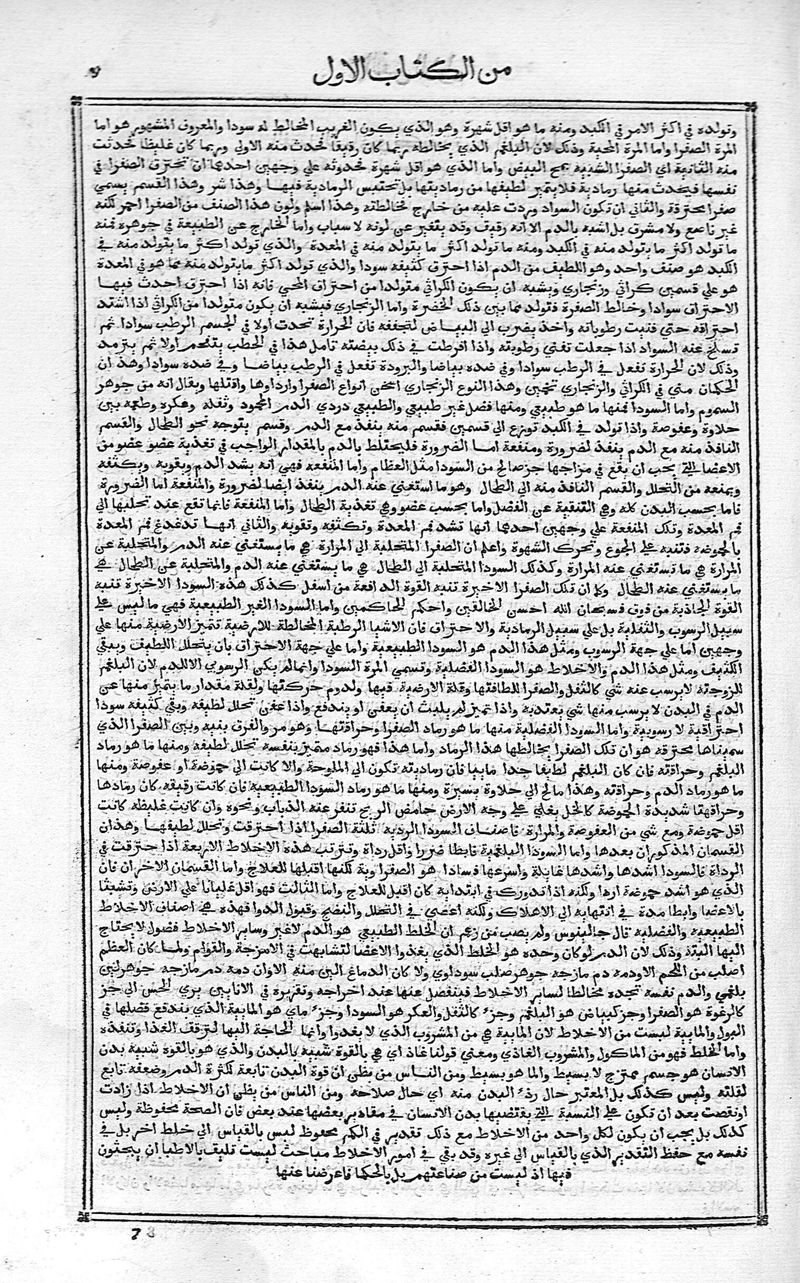 من الكتاب الاول
وتولده في اكثر الامر في الكبد ومنه ما هو اقل شهرة وهو الذي يكون الغريب المخالط له سودا والمعروف المشهور هو اما
المرة الصفرا واما المرة المحية وذلك لان البلغم الذي يخالطه ربما كان رقيقا فحدث منه الاولي وربما كان غليظا فحدثت
منه الثانية اي الصفرا الشبيه بمح البيض واما الذي هو اقل شهرة فحدوثه علي وجهين احدها ان تحترق الصفرا في
نفسها فيحدث منها رمادية فلا يتميز لطيفها من رماديتها بل تحتبس الرمادية فيها وهذا شر وهذا القسم يسمي
صفرا محترقة والثاني ان تكون السواد وردت عليه من خارج فخالطته وهذا اسلم ولون هذا الصنف من الصفرا احمر لكنه
غير ناصع ولا مشرق بل اشبه بالدم الا انه رقيق وقد يتغير عن لونه لاسباب واما الخارج عن الطبيعة في جوهره فمنه
ما تولد اكثر ما يتولد منه في الكبد ومنه ما تولد اكثر ما يتولد منه في المعدة والذي تولد اكثر ما يتولد منه في
الكبد هو صنف واحد وهو اللطيف من الدم اذا احترق كثيفه سودا والذي تولد اكثر ما يتولد منه مما هو في المعدة
هو علي قسمين كراثي وزنجاري ويشبه ان يكون الكراثي متولدا من احتراق المحي فانه اذا احترق احدث فيها
الاحتراق سوادا وخالط الصفرة فتولد مما بين ذلك الخضرة واما الزنجاري فيشبه ان يكون متولدا من الكراثي اذا اشتد
احتراقه حتي فنيت رطوباته واخذ يضرب الي البياض لتجففه فان الحرارة تحدث اولا في الجسم الرطب سوادا ثم
تسلخ عنه السواد اذا جعلت تفني رطوبته واذا افرطت في ذلك بيضته تامل هذا في الحطب يتفحم اولا ثم يترمد
وذلك لان الحرارة تفعل في الرطب سوادا وفي ضده بياضا والبرودة تفعل في الرطب بياضا وفي ضده سوادا وهذ ان
الحكمان مني في الكراثي والزنجاري تخمين وهذا النوع الزنجاري اسخن انواع الصفرا وارداوها واقتلها ويقال انه من جوهر
السموم واما السودا فمنها ما هو طبيعي ومنها فضل غير طبيعي والطبيعي دردي الدم المحمود وثفله وعكره وطعمه بين
حلاوة وعفوصة واذا تولد في الكبد توزع الي قسمين فقسم منه ينفذ مع الدم وقسم يتوجه نحو الطحال والقسم
النافذ منه مع الدم ينفذ لضرورة ومنفعة اما الضرورة فليختلط بالدم بالمقدار الواجب في تغذية عضو عضو من
الاعضا التي يجب ان يقع في مزاجها جز صالح من السودا مثل العظام واما المنفعه فهي انه يشد الدم ويقويه ويكثفه
ويمنعه من التحلل والقسم النافذ منه الي الطحال وهو ما استغني عنه الدم ينفذ ايضا لضرورة والمنفعة اما الضرورة
فاما بحسب البدن كله وهي التنقية عن الفضل واما بحسب عضو وهي تغذية الطحال واما المنفعة فانها تقع عند تحلبها الي
فم المعدة وتلك المنفعة علي وجهين احدها انها تشد فم المعدة وتكثفه وتقويه والثاني انها تدغدغ فم المعدة
بالحموضه فتنبه علي الجوع وتحرك الشهوة واعلم ان الصفرا المتحلبة الي المرارة هي ما يستغني عنه الدم والمتحلبة عن
المرارة هي ما تستغني عنه المرارة وكذلك السودا المتحلبة الي الطحال هي ما يستغني عنه الدم والمتحلبة عن الطحال هي
ما يستغني عنه الطحال وكما ان تلك الصفرا الاخيرة تنبه القوة الدافعة من اسفل كذلك هذه السودا الاخيرة تنبه
القوة الجاذبة من فوق فسبحان الله احسن الخالقين واحكم الحاكمين واما السودا الغير الطبيعية فهي ما ليس علي
سبيل الرسوب والثفلية بل علي سبيل الرمادية والاحتراق فان الاشيا الرطبة المخالطة للارضية تتميز الارضية منها علي
وجهين اما علي جهة الرسوب ومثل هذا الدم هو السودا الطبيعية واما علي جهة الاحتراق بان يتحلل اللطيف ويبقي
الكثيف ومثل هذا الدم والاخلاط هو السودا الفضلية وتسمي المرة السودا وانما لم يكن الرسوبي الا للدم لان البلغم
للزوجته لا يرسب عنه شي كالثفل والصفرا للطافتها وقلة الارضية فيها ولدوم حركتها ولقلة مقدار ما يتميز منها عن
الدم في البدن لا يرسب منها شي يعتد به واذا تميز لم يلبث ان يعفن او يندفع واذا عفن تحلل لطيفه وبقي كثيفه سودا
احتراقية لا رسوبية واما السودا الفضلية منها ما هو رماد الصفرا وحراقتها وهو مر والفرق بينه وبين الصفرا الذي
سميناها محترقة هو ان تلك الصفرا يخالطها هذا الرماد واما هذا فهو رماد متميز بنفسه تحلل لطيفه ومنها ما هو رماد
البلغم وحراقته فان كان البلغم لطيفا جدا مابيا فان رماديته تكون الي الملوحة والا كانت الي حموضة او عفوصة ومنها
ما هو رماد الدم وحراقته وهذا مالح الي حلاوة يسيرة ومنها ما هو رماد السودا الطبيعية فان كانت رقيقه كان رمادها
وحراقتها شديدة الحموضة كالخل يغلي علي وجه الارض حامض الريح تنفر عنه الذباب ونحوه وان كانت غليظه كانت
اقل حموضة ومع شي من العفوصة والمرارة فاصناف السودا الردية ثلثة الصفرا اذا احترقت وتحلل لطيفها وهذان
القسمان المذكوران بعدها واما السودا البلغمية فابطا ضررا واقل رداة وتترتب هذه الاخلاط الاربعة اذا احترقت في
الرداة فالسودا اشدها واشدها غايلة واسرعها فسادا هو الصفراوية لكنها اقبلها للعلاج واما القسمان الاخران فان
الذي هو اشد حموضة اردا ولكنه اذا تدورك في ابتدايه كان اقبل للعلاج واما الثالث فهو اقل غليانا علي الارض وتشبثا
بالاعضا وابطا مدة في انتهايه الي الاهلاك ولكنه اعصي في التحلل والنضج وقبول الدوا فهذه هي اصناف الاخلاط
الطبيعيه والفضليه قال جالينوس ولم يصب من زعم ان الخلط الطبيعي هو الدم لا غير وساير الاخلاط فضول لا يحتاج
اليها البتة وذلك لان الدم لو كان وحده هو الخلط الذي يغذوا الاعضا لتشابهت في الامزجة والقوام ولما كان العظم
اصلب من اللحم الا ودمه دم مازجه جوهر صلب سوداوي ولا كان الدماغ الين منه الا وان دمه دم مازجه جوهر لين
بلغمي والدم نفسه تجده مخالطا لساير الاخلاط فينفصل عنها عند اخراجه وتقريره في الانا بين يدي الحس الي جز
كالرغوة هو الصفرا وجز كبياض هو البلغم وجز كالثفل والعكر هو السودا وجز ماي هو المايية الذي يندفع فضلها في
البول والمايية ليست من الاخلاط لان المايية هي من المشروب الذي لا يغدوا وانما الحاجة اليها لترقق الغذا وتنفذه
واما الخلط فهو من الماكول والمشروب الغاذي ومعني قولنا غاذ اي هي بالقوة شبيه بالبدن والذي هو بالقوة شبيه بدن
الانسان هو جسم ممتزج لا بسيط والما هو بسيط ومن الناس من يظن ان قوة البدن تابعة لكثرة الدم وضعفه تابع
لقلته وليس كذلك بل المعتبر حال رذء البدن منه اي حال صلاحه ومن الناس من يظن ان الاخلاط اذا زادت
او نقصت بعد ان تكون علي النسبة التي يقتضيها بدن الانسان في مقادير بعضها عند بعض فان الصحة محفوظة وليس
كذلك بل يجب ان يكون لكل واحد من الاخلاط مع ذلك تقدير في الكم محفوظ ليس بالقياس الي خلط اخر بل في
نفسه مع حفظ التقدير الذي بالقياس الي غيره وقد بقي في امور الاخلاط مباحث ليست تليق بالاطبا ان يبحثون
فيها اذ ليست من صناعتهم بل بالحكما فاعرضنا عنها
7 8